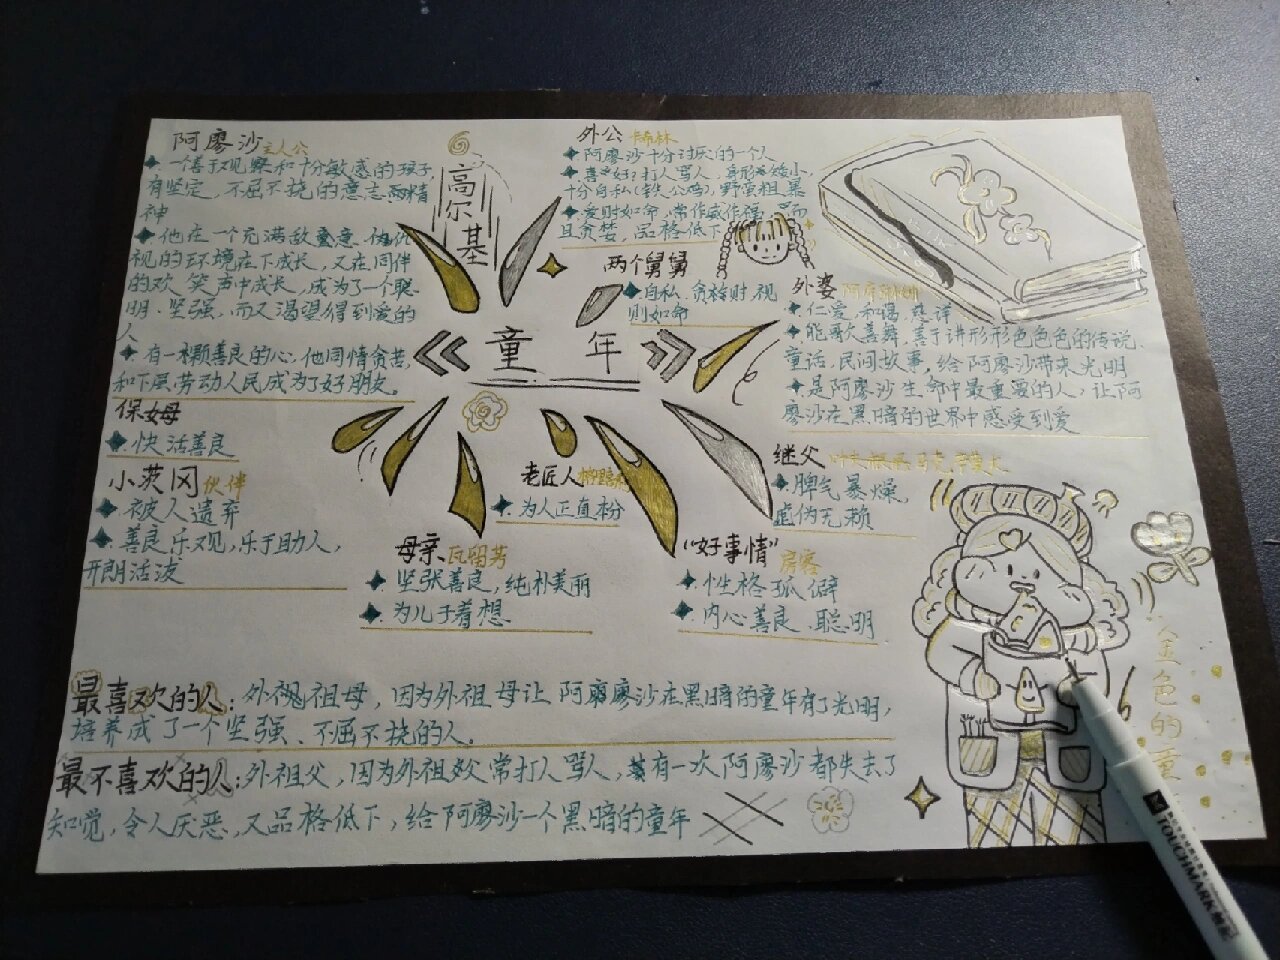 阿廖沙 主人公
一个善于观察和十分敏感的孩子,
有坚定、不屈不挠的意志和精
神
他在一个充满敌意、仇
视的环境在下成长,又在同伴
的欢笑声中成长,成为了一个聪
明、坚强,而又渴望得到爱的
人
有一颗善良的心,他同情贫苦,
和下层劳动人民成为了好朋友。
保姆
快活善良
小茨冈 伙伴
被人遗弃
善良乐观,乐于助人,
开朗活泼
高尔基
《童年》
外公
阿廖沙十分讨厌的一个人
喜好打人骂人,身形矮小,
十分自私(铁公鸡),野蛮粗暴
爱财如命,常作威作福,而
且贪婪,品格低下
两个舅舅
自私、贪持财,视
则如命
外婆
仁爱、和蔼、慈详
能歌善舞,善于讲形形色色色的传说、
童话、民间故事,给阿廖沙带来光明
是阿廖沙生命中最重要的人,让下阿
廖沙在黑暗的世界中感受到爱
继父
脾气暴燥,
虚伪无赖
老匠人
为人正直
母亲 瓦留莎
坚张善良,纯朴美丽
为儿子着想
“好事情” 房客
性格孤僻
内心善良、聪明
最喜欢的人:外祖母,因为外祖母让阿廖沙在黑暗的童年有了光明,
培养成了一个坚强、不屈不挠的人。
最不喜欢的人:外祖父,因为外祖父常打人骂人,有一次阿廖沙都失去了
知觉,令人厌恶,又品格低下,给阿廖沙一个黑暗的童年
金色的童
TOUCHMARK